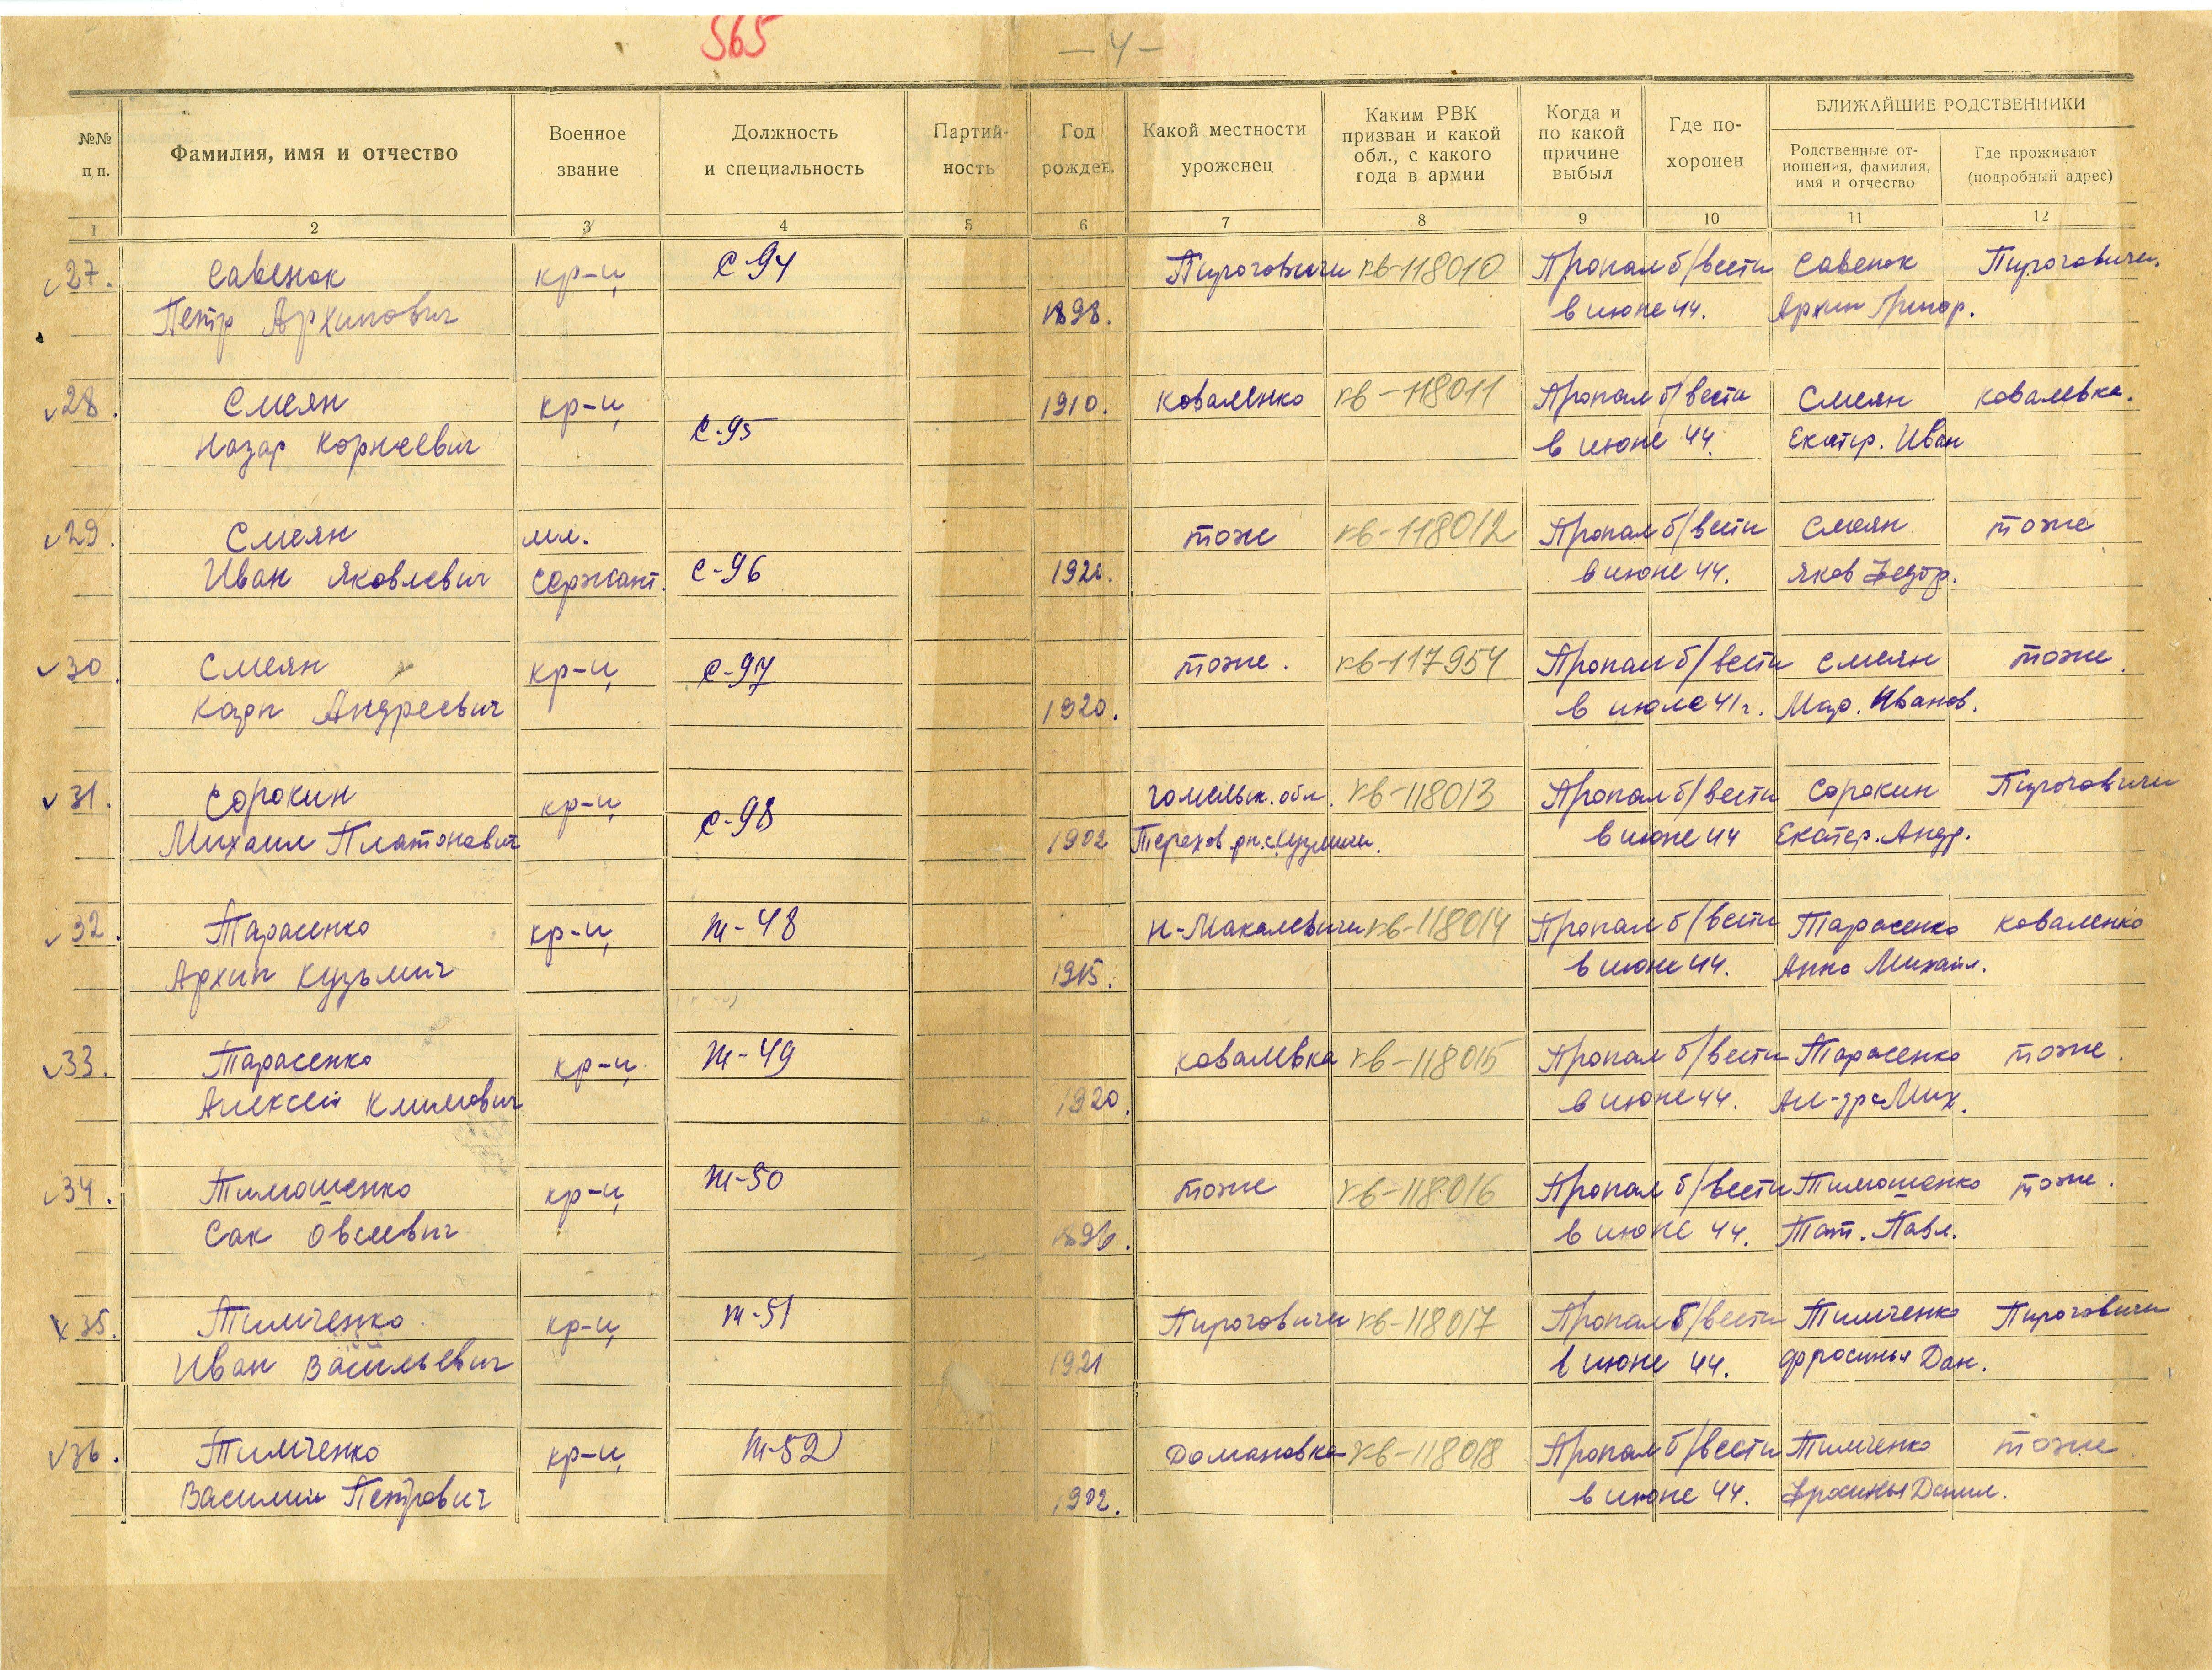 565
— 4 —
№№ п/п. | Фамилия, имя и отчество | Военное звание | Должность и специальность | Партийность | Год рожден. | Какой местности уроженец | Каким РВК призван и какой обл., с какого года в армии | Когда и по какой причине выбыл | Где похоронен | БЛИЖАЙШИЕ РОДСТВЕННИКИ
Родственные отношения, фамилия, имя и отчество | Где проживают (подробный адрес)
1 2 3 4 5 6 7 8 9 10 11 12
27. Савенок кр-ц С-94 Пироговичи кв-118010 Пропал б/вести Савенок Пироговичи.
Петр Архипович 1898. в июне 44. Архип Григор.
28. Смеян кр-ц 1910. Коваленко кв-118011 Пропал б/вести Смеян Ковалевка.
Назар Корнеевич С-95 в июне 44. Екатер. Иван
29. Смеян мл. тоже кв-118012 Пропал б/вести Смеян тоже
Иван Яковлевич Сержант. С-96 1920. в июне 44. Яков Федор.
30 Смеян кр-ц С-97 тоже. кв-117954 Пропал б/вести Смеян тоже.
Карп Андреевич 1920. в июле 41 г. Мар. Иванов.
31. Сорокин кр-ц Гомельск. обл. кв-118013 Пропал б/вести Сорокин Пироговичи
Михаил Платонович С-98 1902 Терехов. рн. с. Кузмичи. в июне 44 Екатер. Андр.
32. Тарасенко кр-ц Т-48 Н-Макалевичи кв-118014 Пропал б/вести Тарасенко Коваленко
Архип Кузьмич 1915. в июне 44. Анна Михайл.
33. Тарасенко кр-ц. Т-49 Ковалевка кв-118015 Пропал б/вести Тарасенко тоже.
Алексей Климович 1920. в июне 44. Ал-дра Мих.
34. Тимошенко кр-ц Т-50 тоже кв-118016 Пропал б/вести Тимошенко тоже.
Сак Овсеевич 1896. в июне 44. Тат. Павл.
35. Тимченко. кр-ц Т-51 Пироговичи кв-118017 Пропал б/вести Тимченко Пироговичи
Иван Васильевич 1921 в июне 44. Фросинья Дан.
36. Тимченко кр-ц Т-52 Домановка кв-118018 Пропал б/вести Тимченко тоже.
Василий Петрович 1902. в июне 44. Фросинья Данил.